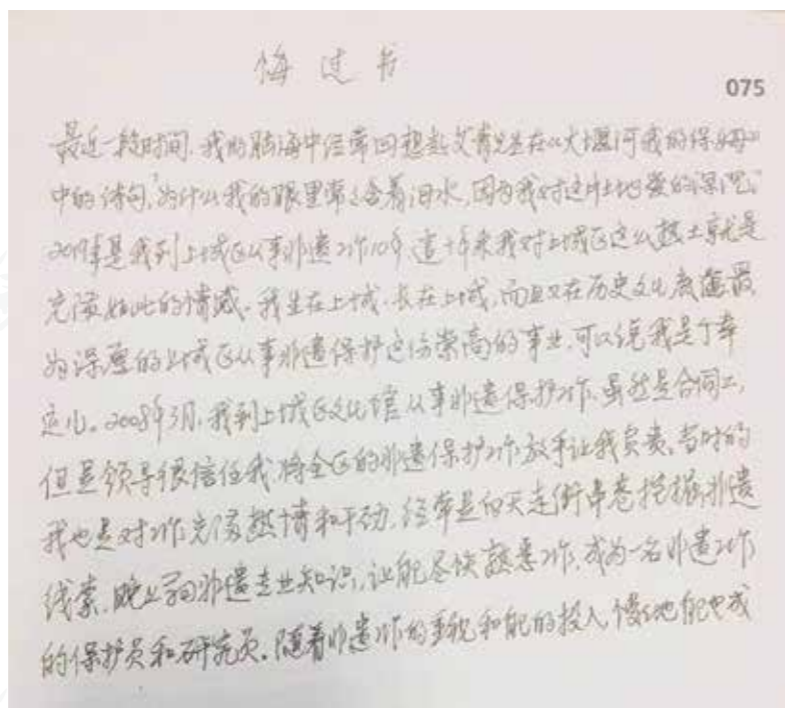 悔过书
075
最近一段时间,我的脑海中经常回想起艾青先生在《大堰河我的保姆》
中的诗句"为什么我的眼里常含着泪水,因为我对这片土地爱的深沉"
2019年是我到上城区从事非遗工作10年,这十年来我对上城区这么热土就是
充满如此的情感。我生在上城、长在上城,而且又在历史文化底蕴最
为深厚的上城区从事非遗保护这份崇高的事业,可以说我是个幸
运儿。2008年3月,我到上城区文化馆从事非遗保护工作,虽然是合同工,
但是领导很信任我,将全区的非遗保护工作放手让我负责。当时的
我也是对工作充满热情和干劲,经常是白天走街串巷挖掘非遗
线索,晚上学习非遗专业知识,让能尽快熟悉工作,成为一名非遗工作
的保护员和研究员。随着非遗工作的重视和能的投入,慢慢地能也成